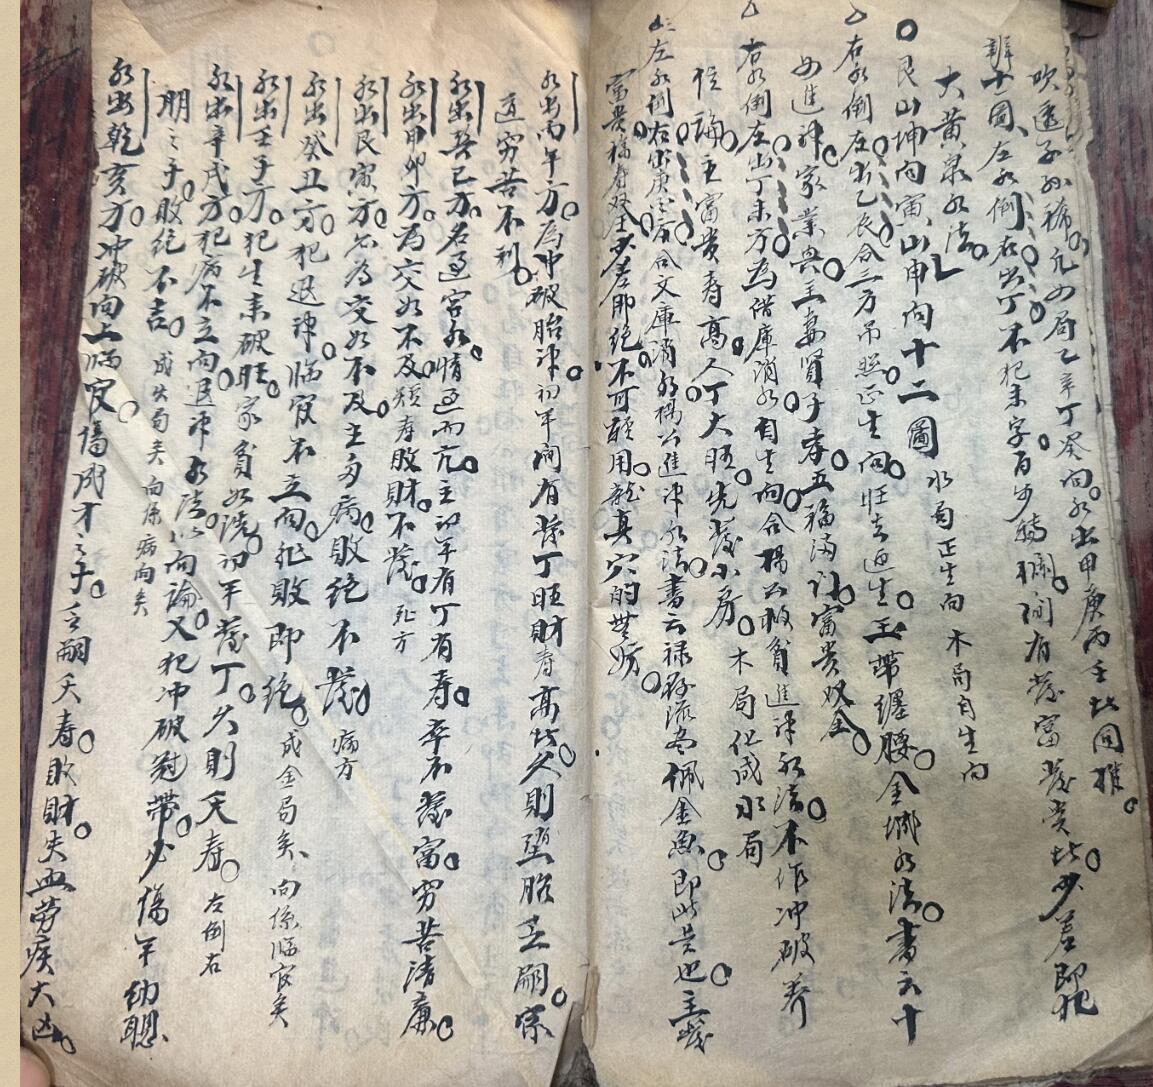 吹遥子孙稀。凢四局乙辛丁癸向。水出甲庚丙壬皆同推。
辨十圖、左水倒右出丁不犯未字。百步轉欄。间有發富發贵者。少差即犯
大黄泉水法。
艮山坤向寅山申向十二圖 水局正生向 木局自生向
右水倒左出乙辰合三方吊照。正生向。旺去迎生。玉帶纏腰。金城水法。書云十
四進神家業興。主妻賢子孝。五福满門。富贵双全。
右水倒左出丁未方。為借庫消水自生向。合楊公救貧進神水法。不作冲破养
位論。主富贵寿高。人丁大旺。先發小房。木局化成水局
左水倒右出庚酉方。合文庫消水。楊公進神水法。書云禄存流尽佩金魚。即此是也。主發
富贵福寿双全。少差即绝。不可輕用。龍真穴的無妨。
水出丙午方。為冲破胎神。初年间有發丁旺財寿高者。久則墮胎乏嗣。家
道穷苦不利。
水出巽巳方。名過宫水。情過而亢。主初年有丁有寿。幸不發富。穷苦清廉。
水出甲卯方。為交如不及。頦寿敗財不發。死方
水出艮寅方。亦為交如不及。主多病。敗绝不發。病方
水出癸丑方。犯退神。臨官不立向。犯敗即绝。成金局矣、向係臨官矣
水出壬子方。犯生来破旺。家貧如洗。初年發丁。久則夭寿。左倒右
水出辛戌方。犯病不立向。退神水法以向論。又犯冲破冠帶。必傷年幼聰
明之子。敗绝不吉。成火局矣 向係病向矣
水出乾亥方。冲破向上臨官。傷成才之子。乏嗣夭寿。敗財。失血劳疾大凶。